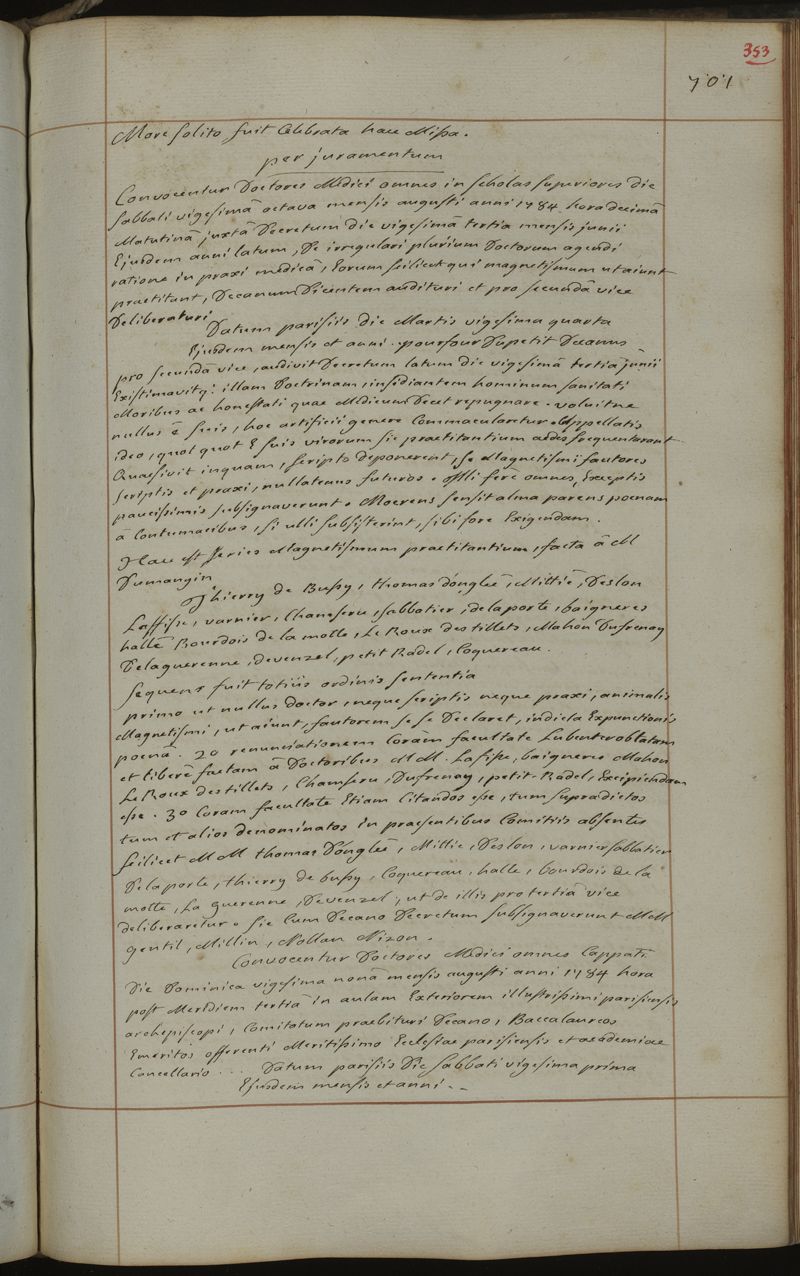 353
701
More solito fuit Celebrata haec Missa.
per juramentum
Convocentur Doctores Medici omnes in scholas superiores die
sabbati vigesimâ octava mensis augusti anni 1784 hora decimâ
Matutinâ juxtâ Decretum die vigesimâ tertia mensis junii
Ejusdem anni latum, De irregulari plurium Doctorum agendi
ratione in praxi medicâ, Eorum scilicet qui magnetismum ut aiunt
practitant, Decanum Dicentem audituri et pro secundâ vice
Deliberaturi
Datum parisiis die Martis vigesima quarta
Ejusdem mensis et anni. pourfour Dupetit Decanus
pro secundâ vice, audivit Decretum latum die vigesimâ tertia junii
Existimavitq: illam Doctrinam, insidiantem hominum sanitati
Moribus ac honestati quae Medicum Decet repugnare. voluitne
nullus è suis, hoc artificii genere Commacularetur. Appellatis
ideo, quot quot E suis virorum sic practitantium aedes frequentarant
Quaesivit inquam, scripto deponerent, se Magnetismi fautores
scriptis et praxi, nullatenus futuros. Illi fere omnes, Exceptis
paucissimis subsignaverunt. Moerens sensit alma parens poenam
à Contumacibus, si ulli subsisterint, sibi fore Exigendam.
Haec est series Magnetismum practitantium, facta â M
Dumangin
Thierry de Bussy, thomas d'onglée, Millié, Deslon
Laffisse, varnier, Chamseru, sabbatier, delaporte, baigneres
hallé Bourdois de la motte, Le Roux des tillets, Mahon Dufrenay
Delaguerenne, devenzel, petit Radel, Coquereau.
Sequens fuit totiùs ordinis sententia
primo ut nullus doctor, neque scriptis neque praxi, animalis
Magnetismi, ut aiunt, fautorem se se Declaret, indicta Expunctionis
poenâ. 2o renunciationem Corâm facultate Lubenter oblatam
et liberè factam â Doctoribus M M. Lafisse, baigneres Mahon
Le Roux des tillets, Chamseru, Dufrenay, petit-Radel, Excipiendam
esse. 3o Coram facultate Etiam Citandos esse, tum supradictos
tum et alios denominatos in praesentibus Comitiis absentes
scilicet M M thomas D'onglée, Millie, Deslon, varnier sabbatier
Delaporte, thierry de bussy, Coquereau, halle, bourdois de la
motte, La guerenne, Devenzel, ut de illis pro tertiâ vice
deliberaretur. Sic Cum Decano Decretum subsignaverunt M M
Gentil, Millin, Nollan Nizon.
Convocentur Doctores Medici omnes Cappati
Die Dominica vigesima nonâ mensis augusti anni 1784 hora
post Meridiem tertiâ in aulam Exteriorem illustrissimi parisiensis
archepiscopi, Comitatum praebituri Decano, Baccalaureos
Emeritos offerenti Meritissimo Ecclesiae parisiensis et academiae
Cancellario... Datum parisiis Die sabbati vigesima prima
Ejusdem mensis et anni.